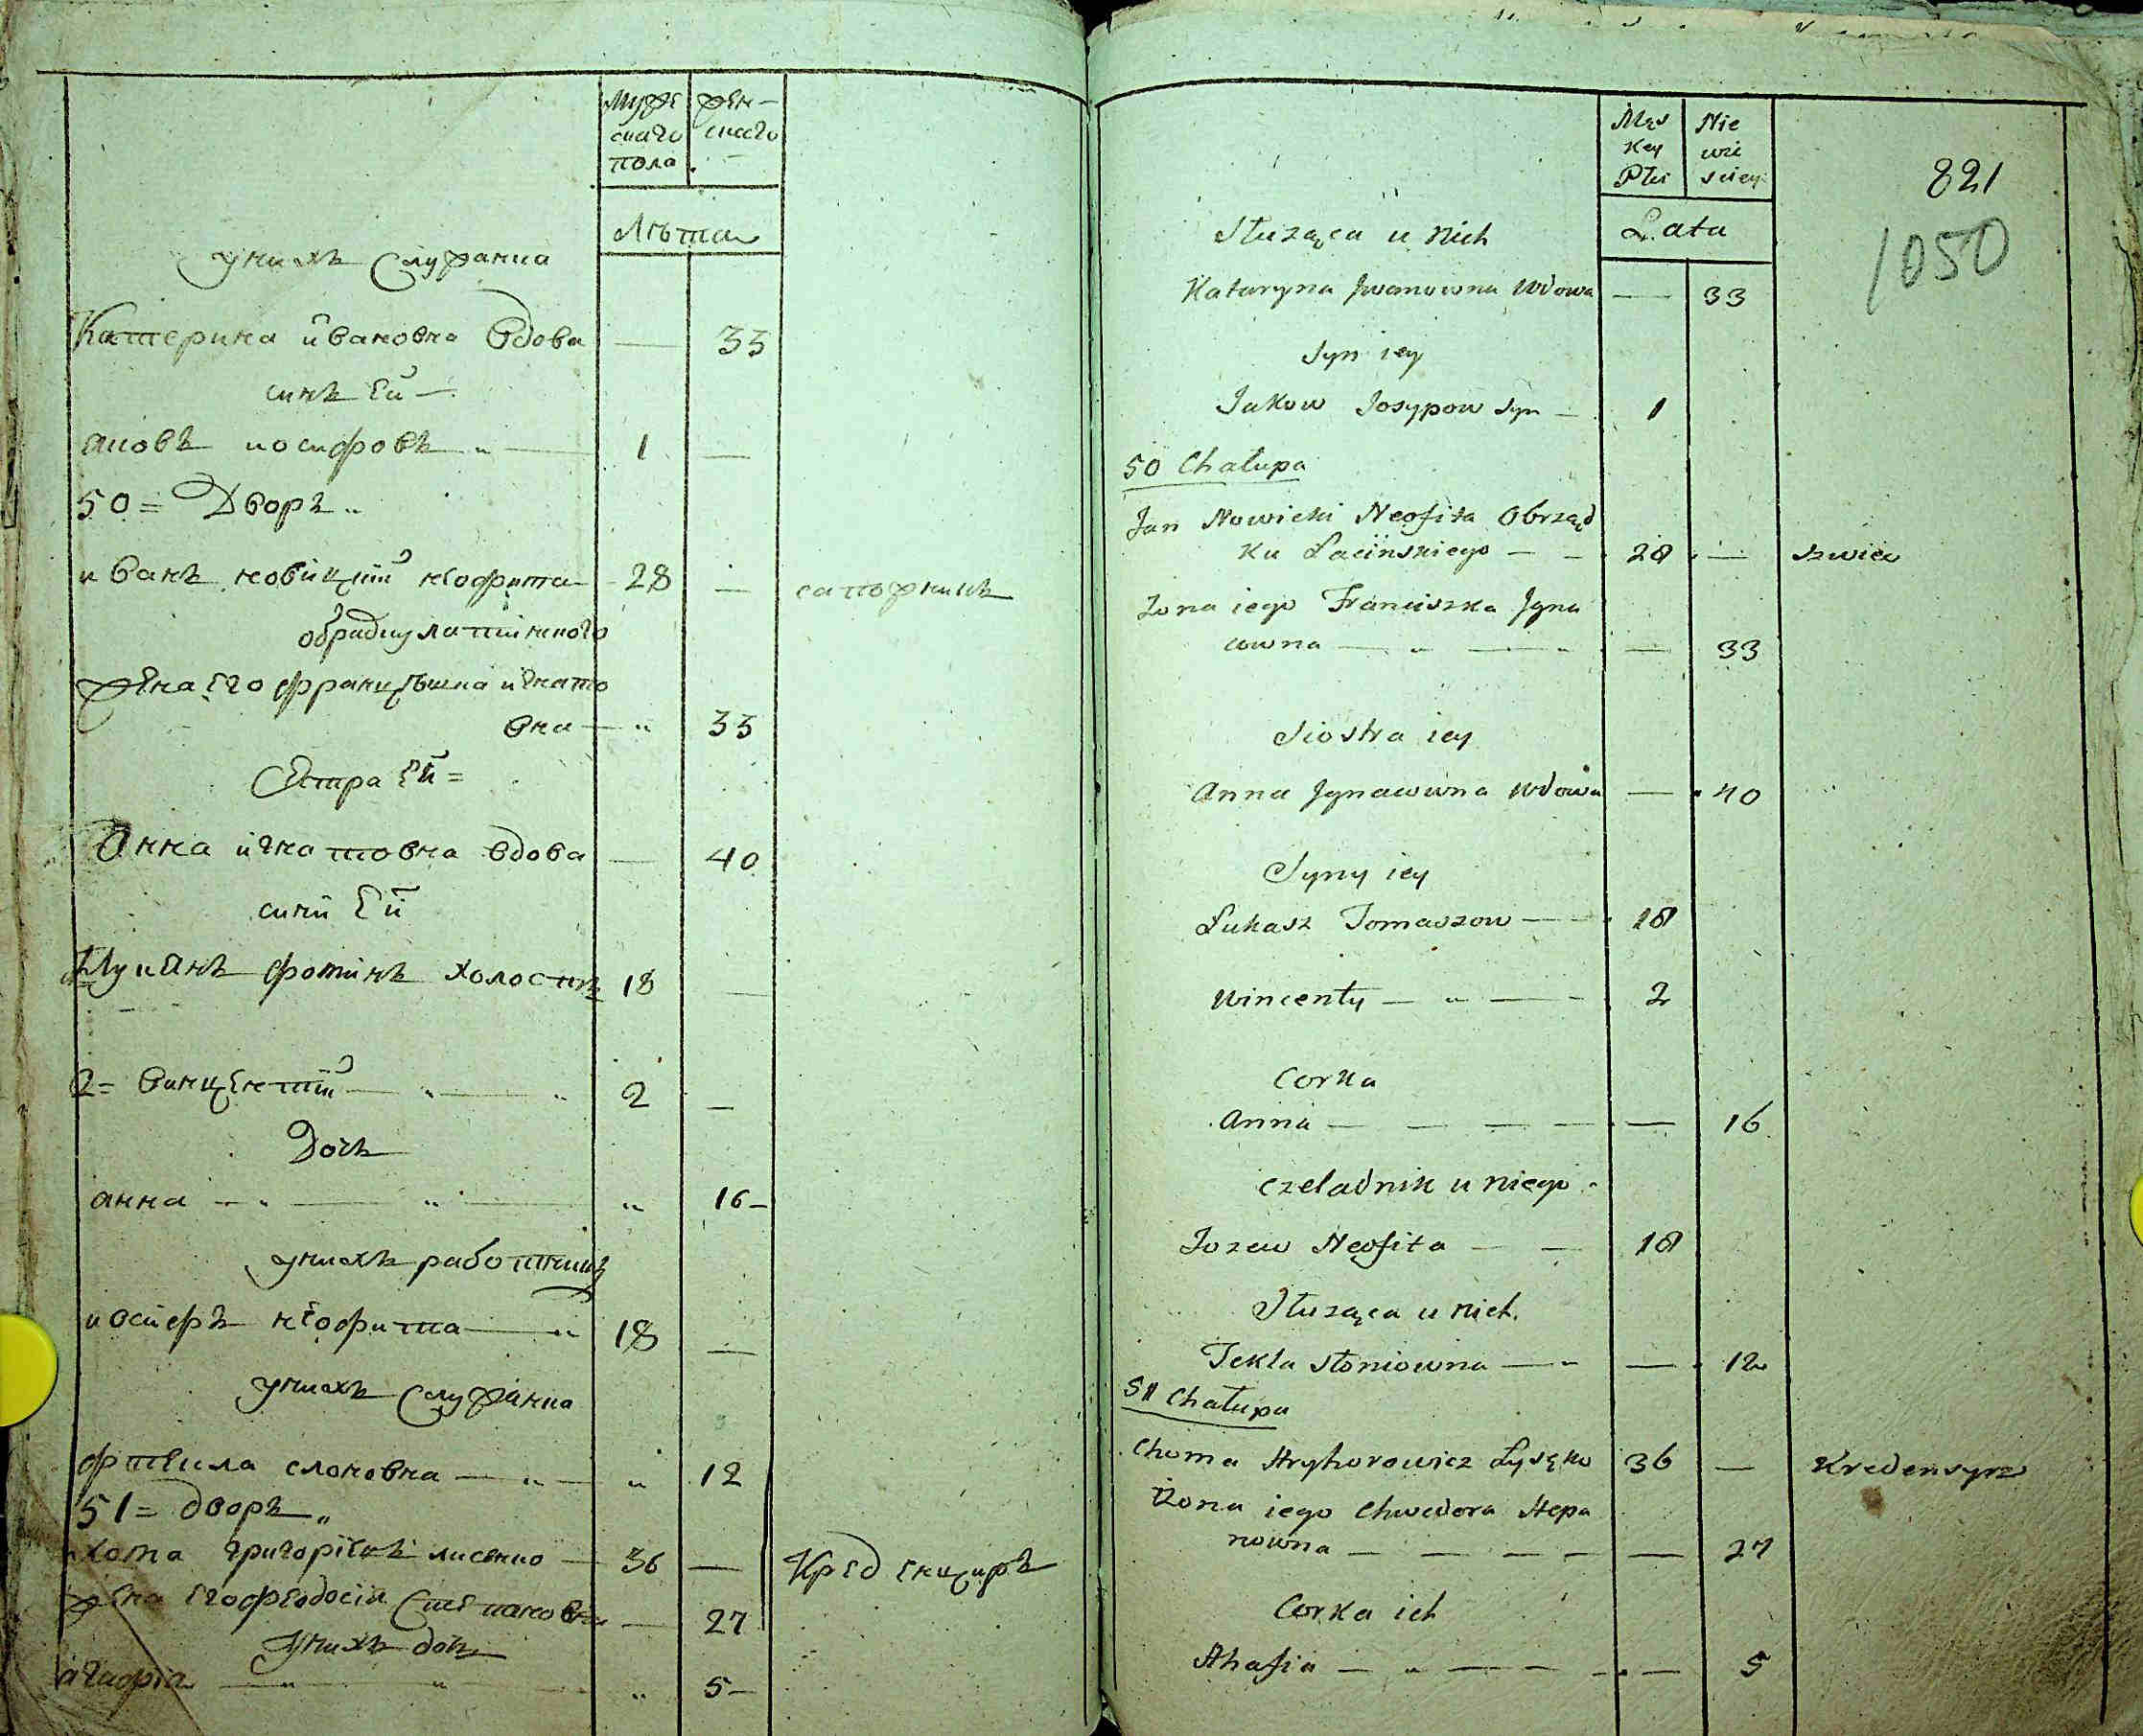 Муже
скаго
пола
жен-
скаго
Лѣта
у нихъ служанка
Катерина ивановна вдова — 33
синъ Ей —
аковъ иосифовъ „ — 1 —
50 = Дворъ „
иванъ новицкий неофита - 28 — сапожникъ
обрядку латинского
жена Его францѣшка игнато
вна — „ 33
Сестра Ей =
Анна игнатовна вдова — 40
сини Ей
Лукянъ фоминъ холостъ 18 —
2 = Винцентий — „ — „ 2 —
Дочь
анна — „ — „ — „ 16 -
у нихъ работникъ
иосифъ неофита — „ 18 —
у нихъ служанка
фтекла слоновна — „ — „ 12
51 = дворъ „
хома григоріевъ лисенко — 36 — Кредєнциръ
жена Его феодосія Степановна — 27
у нихъ дочь
агафія — „ — „ — „ 5 -
Męs
key
Płci
Nie
wie
sciey
Lata
821
1050
Służąca u nich
Kataryna Jwanowna wdowa — 33
Syn iey
Jakow Josypow syn — 1
50 Chałupa
Jan Nowicki Neofita Obrząd
ku Łacinskiego — — 28 — szwiec
Zona iego Franciszka Jgna
cowna — „ — „ — 33
Siostra iey
Anna Jgnacowna wdowa — 40
Syny iey
Łukasz Tomaszow — — 18
Wincenty — „ — - 2
Corka
Anna — — — — — 16
czeladnik u niego
Jozew Neofita — — 18
Służąca u nich.
Tekla słoniowna — „ — 12
51 Chałupa
Choma Hryhorowicz Łysęko 36 — Kredensyrz
Żona iego Chwedora Stepa
nowna — — — — — 27
Corka ich
Ahafia — „ — — — — 5